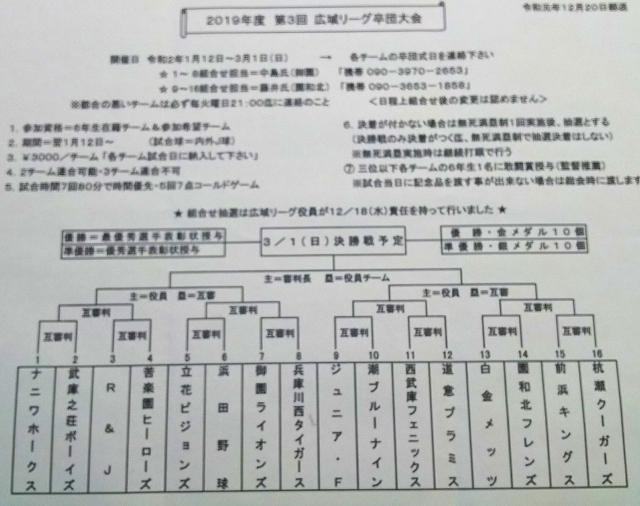 令和元年12月20日郵送
2019年度 第3回 広域リーグ卒団大会
開催日 令和2年1月12日~3月1日(日) → 各チームの卒団式日を連絡下さい
☆ 1~ 8組合せ担当=中島氏(御園) 「携帯 090-3970-2653」
☆ 9~16組合せ担当=藤井氏(園和北) 「携帯 090-3653-1858」
※都合の悪いチームは必ず毎火曜日21:00迄に連絡のこと <日程上組合せ後の変更は認めません>
1. 参加資格=6年生在籍チーム&参加希望チーム
2. 期間=翌1月12日~ (試合球=内外J球)
3. ¥3000/チーム「各チーム試合日に納入して下さい」
4. 2チーム連合可能・3チーム連合不可
5. 試合時間7回80分で時間優先・5回7点コールドゲーム
6. 決着が付かない場合は無死満塁制1回実施後、抽選とする
(決勝戦のみ決着がつく迄、無死満塁制で抽選決着はしない)
※無死満塁実施時は継続打順で行う
⑦ 三位以下各チームの6年生1名に敢闘賞授与(監督推薦)
※試合当日に記念品を渡す事が出来ない場合は総会時に渡します
★ 組合せ抽選は広域リーグ役員が12/18(水)責任を持って行いました ★
優勝=最優秀選手表彰状授与
準優勝=優秀選手表彰状授与
3/1(日)決勝戦予定
優勝・金メダル10個
準優勝・銀メダル10個
主=審判長 塁=役員チーム
主=役員 塁=互審 主=役員 塁=互審
互審判 互審判 互審判 互審判
互審判 互審判 互審判 互審判 互審判 互審判 互審判 互審判
1 2 3 4 5 6 7 8 9 10 11 12 13 14 15 16
ナニワホークス
武庫之荘ボーイズ
R&J
苦楽園ヒーローズ
立花ピジョンズ
浜田野球
御園ライオンズ
兵庫川西タイガース
ジュニア・F
潮ブルーナイン
西武庫フェニックス
道意プラミス
白金メッツ
園和北フレンズ
前浜キングス
杭瀬クーガーズ